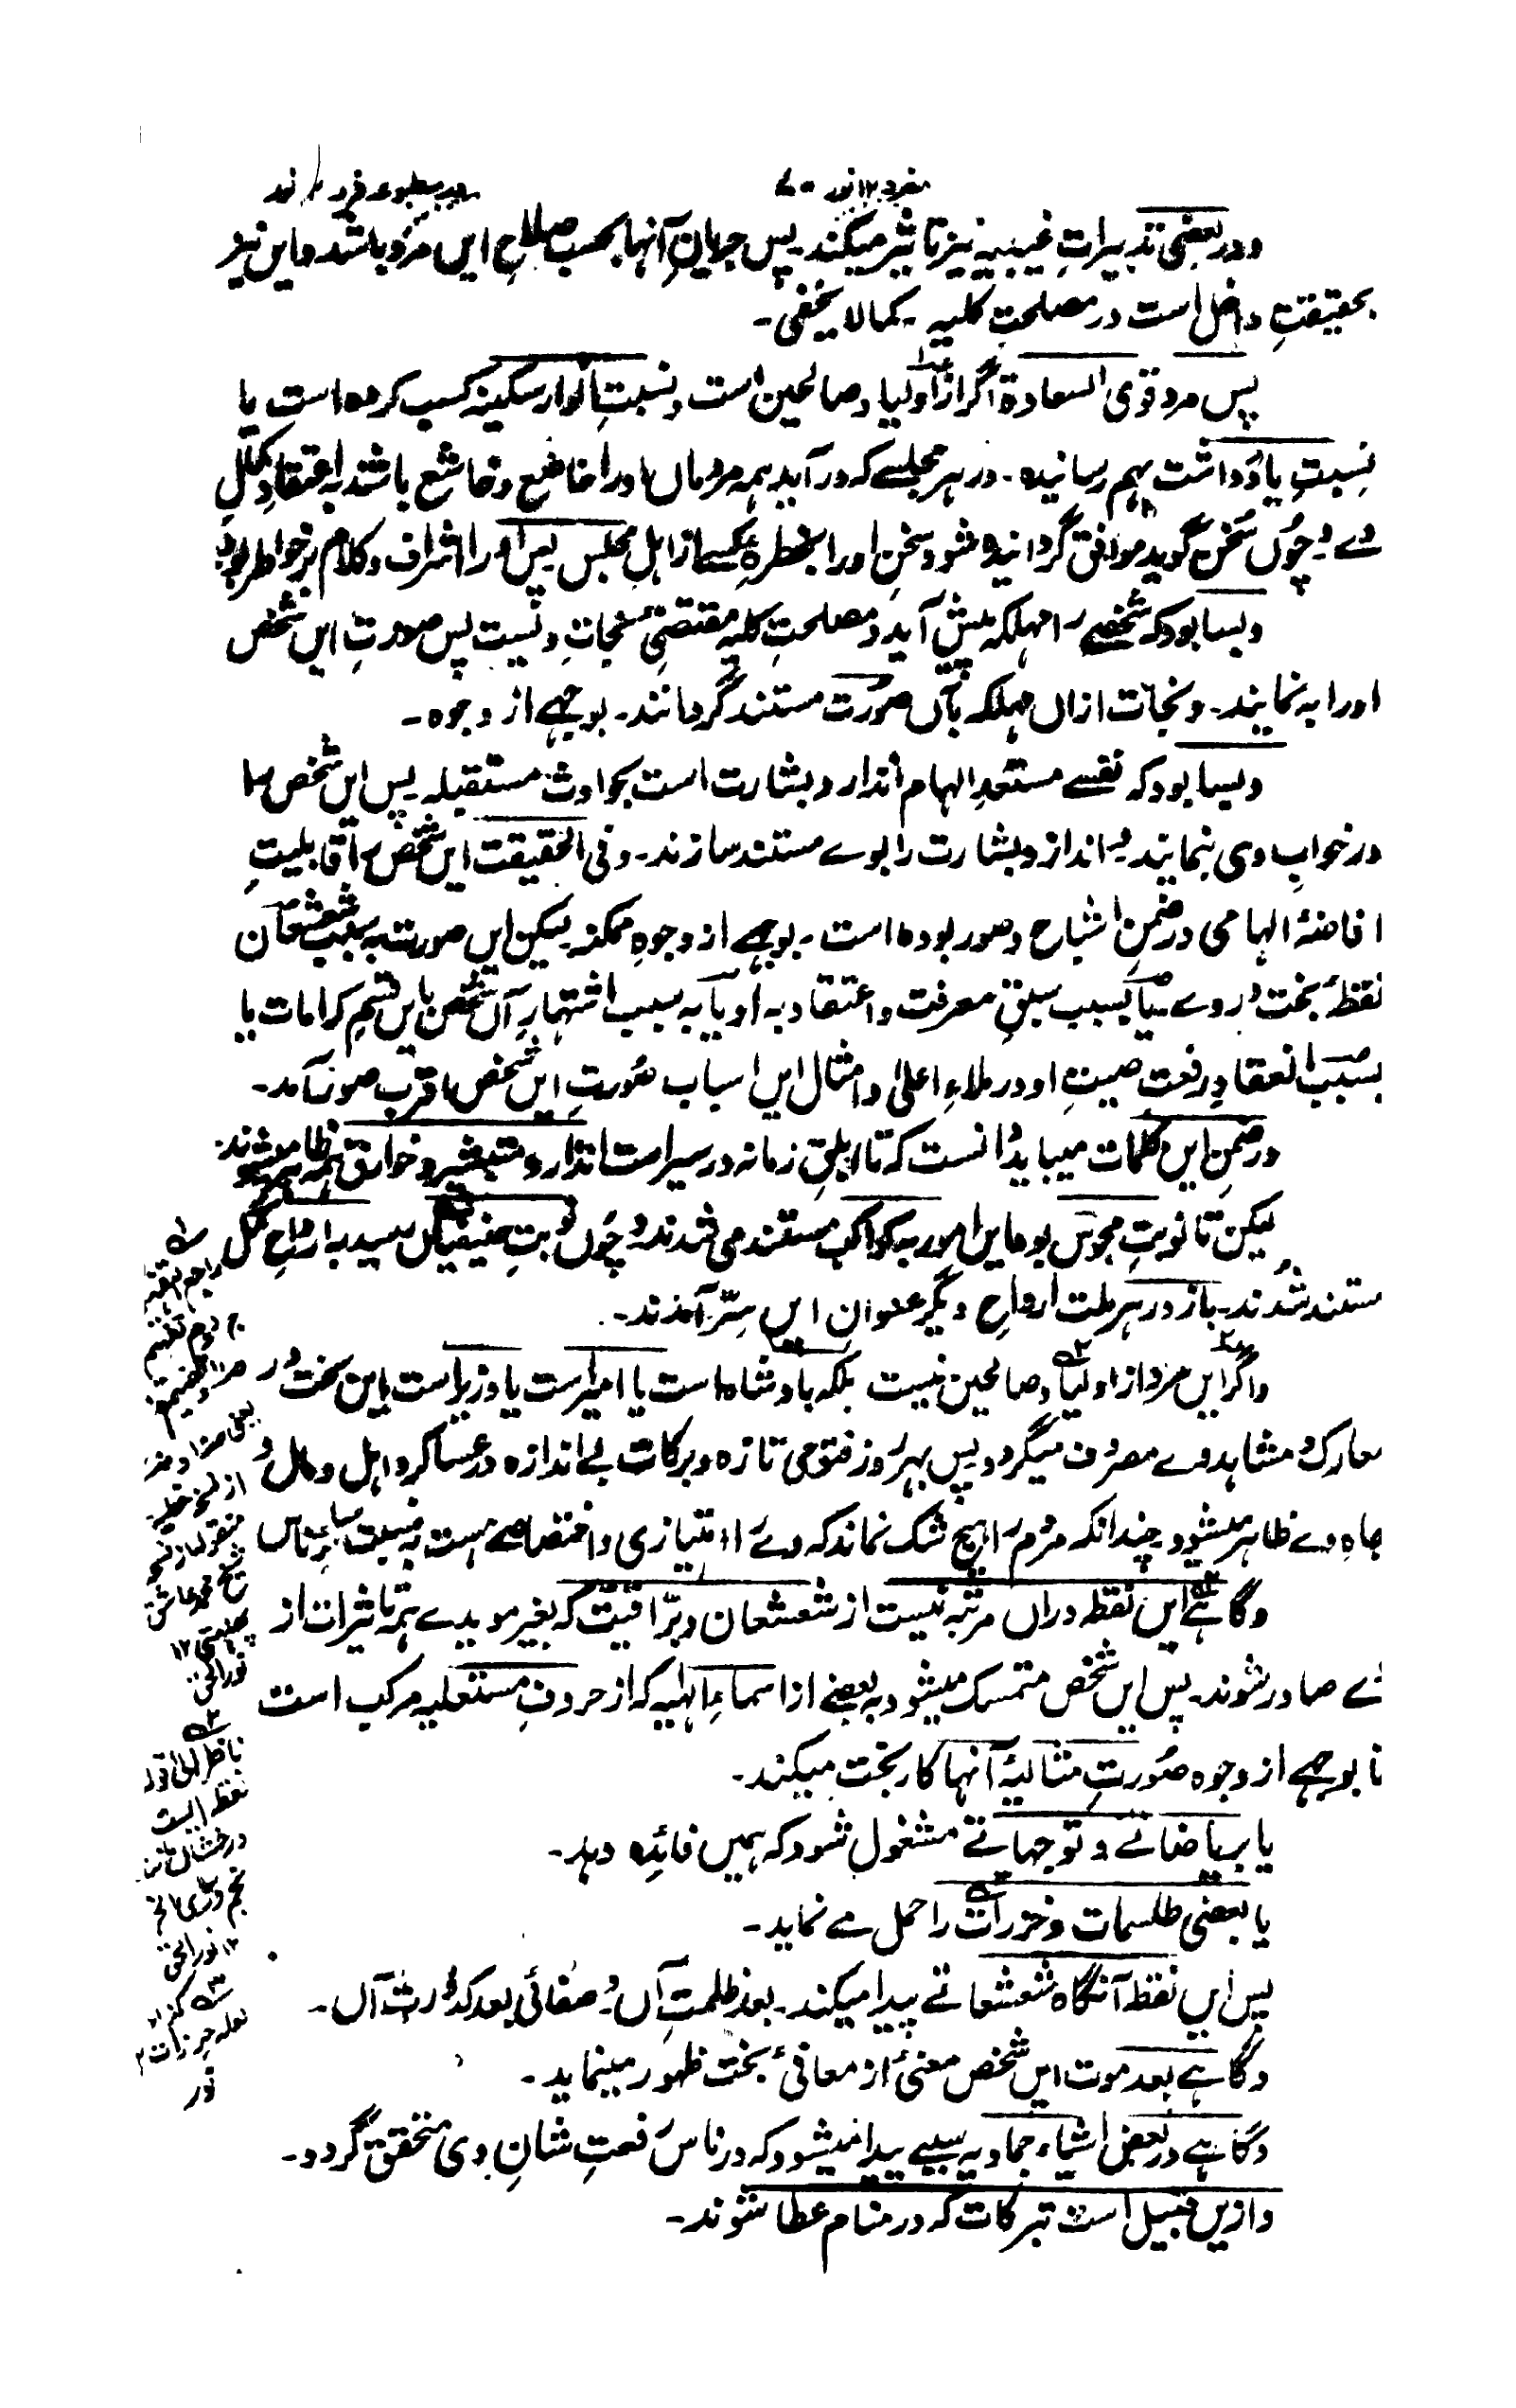 ودر بعضی تدبیراتِ غیبیہ نیز تاثیر میکند۔ پس جریانِ آنہا بحسب صلاحِ ایں مرد باشد و ایں نیز
بحقیقت داخل است در مصلحتِ کلیہ۔ کمالا یخفی۔
پس مرد قوی السعادة اگر از اولیا و صالحین است و نسبتِ انوار سکینہ کسب کردہ است یا
نسبتِ یادداشت بہم رسانیدہ۔ در ہر مجلسے کہ در آید ہمہ مردماں اورا خاضع و خاشع باشند بہ اعتقاد
وے و چوں سخن گوید موافق گردانیدہ شود سخنِ اورا بخطرۂ کسے از اہلِ مجلس پس اورا اشراف و کلام بر خواطر بود
و بسا بود کہ شخصے را مہلکہ پیش آید و مصلحتِ کلیہ مقتضیٔ نجاتِ ونیست پس صورتِ ایں شخص
اورا بہ نمایند۔ و نجات ازاں مہلکہ بآں صورت مستند گردانند۔ بوجہے از وجوہ۔
و بسا بود کہ نفسے مستعدِ الہام انذار و بشارت است بحوادث مستقبلہ پس ایں شخص را
در خوابِ وی بنمایند و انذار و بشارت را بوے مستند سازند۔ و فی الحقیقت ایں شخص را قابلیتِ
افاضۂ الہامی در ضمنِ اشباح و صور بودہ است۔ بوجہے از وجوہِ ممکنہ۔ لیکن ایں صورت بہ سبب شعشعان
نقطۂ بخت در وے۔ یا بسبب سبقِ معرفت و اعتقاد بہ او یا بہ سبب اشتہارِ آں شخص بایں قسم کرامات یا
بسبب انعقادِ رفعت صیتِ او در ملاءِ اعلیٰ و امثال ایں اسباب صورتِ ایں شخص اقرب صور آمد۔
در ضمنِ ایں کلمات میباید دانست کہ تا ابلقِ زمانہ در سیر است انذار و تبشیر و خوارق ہمہ ظاہر میشوند۔
لیکن تا نوبتِ مجوس بود ایں امور بہ کواکب مستند می شدند و چوں نوبتِ حنیفیاں رسید بہ ارواحِ کمل
مستند شدند۔ باز در ہر ملت ارواحِ دیگر عنوانِ ایں سِرّ آمدند۔
و اگر ایں مرد از اولیا و صالحین نیست بلکہ بادشاہ است یا امیر است یا وزیر است پس ایں بخت در
معارک و مشاہد وے مصروف میگردد پس بہر روز فتوحی تازہ و برکات بے اندازہ در عساکر و اہل و مال و
جاہِ وے ظاہر میشود چندانکہ مردم را ہیچ شک نماند کہ وے را امتیازی و اختصاصے ہست بہ نسبت سائر ناس
و گاہے ایں نقطہ دراں مرتبہ نیست از شعشعان و برّاقیت کہ بغیر مویدے ہمہ تاثیرات از
وے صادر شوند۔ پس ایں شخص متمسک میشود بہ بعضے از اسماءِ الٰہیہ کہ از حروفِ مستعلیہ مرکب است
تا بوجہے از وجوہ صورتِ مثالیۂ آنہا کار بخت میکند۔
یا بریاضاتے و توجہاتے مشغول شود کہ ہمیں فائدہ دہد۔
یا بعضی طلسمات و خزرات را حمل مے نماید۔
پس ایں نقطہ آنگاہ شعشعانے پیدا میکند۔ بعد ظلمتِ آں و صفائی بعد کدورت آں۔
و گاہے بعد موت ایں شخص معنیٔ از معانیٔ بخت ظہور مینماید۔
و گاہے در بعض اشیاء جمادیہ سببے پیدا میشود کہ در ناس رفعتِ شانِ وی متحقق گردد۔
و ازیں قبیل است تبرکات کہ در منام عطا شوند۔